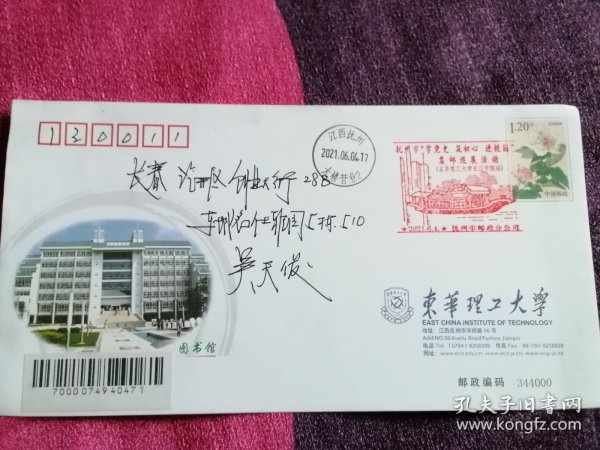 130011
江西抚州
2021.06.04.17
1.20元
CHINA
中国邮政
抚州市“学党史 筑初心 进校园”
集邮巡展活动
(东华理工大学长江学院站)
★2021.6.4.★ 抚州市邮政分公司
长春 汽开区 创业大街 28号
吴天俊
东华理工大学
EAST CHINA INSTITUTE OF TECHNOLOGY
地址 江西抚州市学府路 56 号
Add:NO.56.Xuefu Road.Fuzhou Jiangxi
电话 Tel：( 0794) 8258299 传真 Fax: 86-794-8258828
网址：www.ecit.edu.cn www.ecir.jx.cn
邮政编码 344000
图书馆
7000074940471
孔夫子旧书网
www.kongfz.com